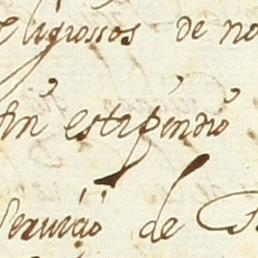 eligiossos de no
fin estipendio
seruicio de